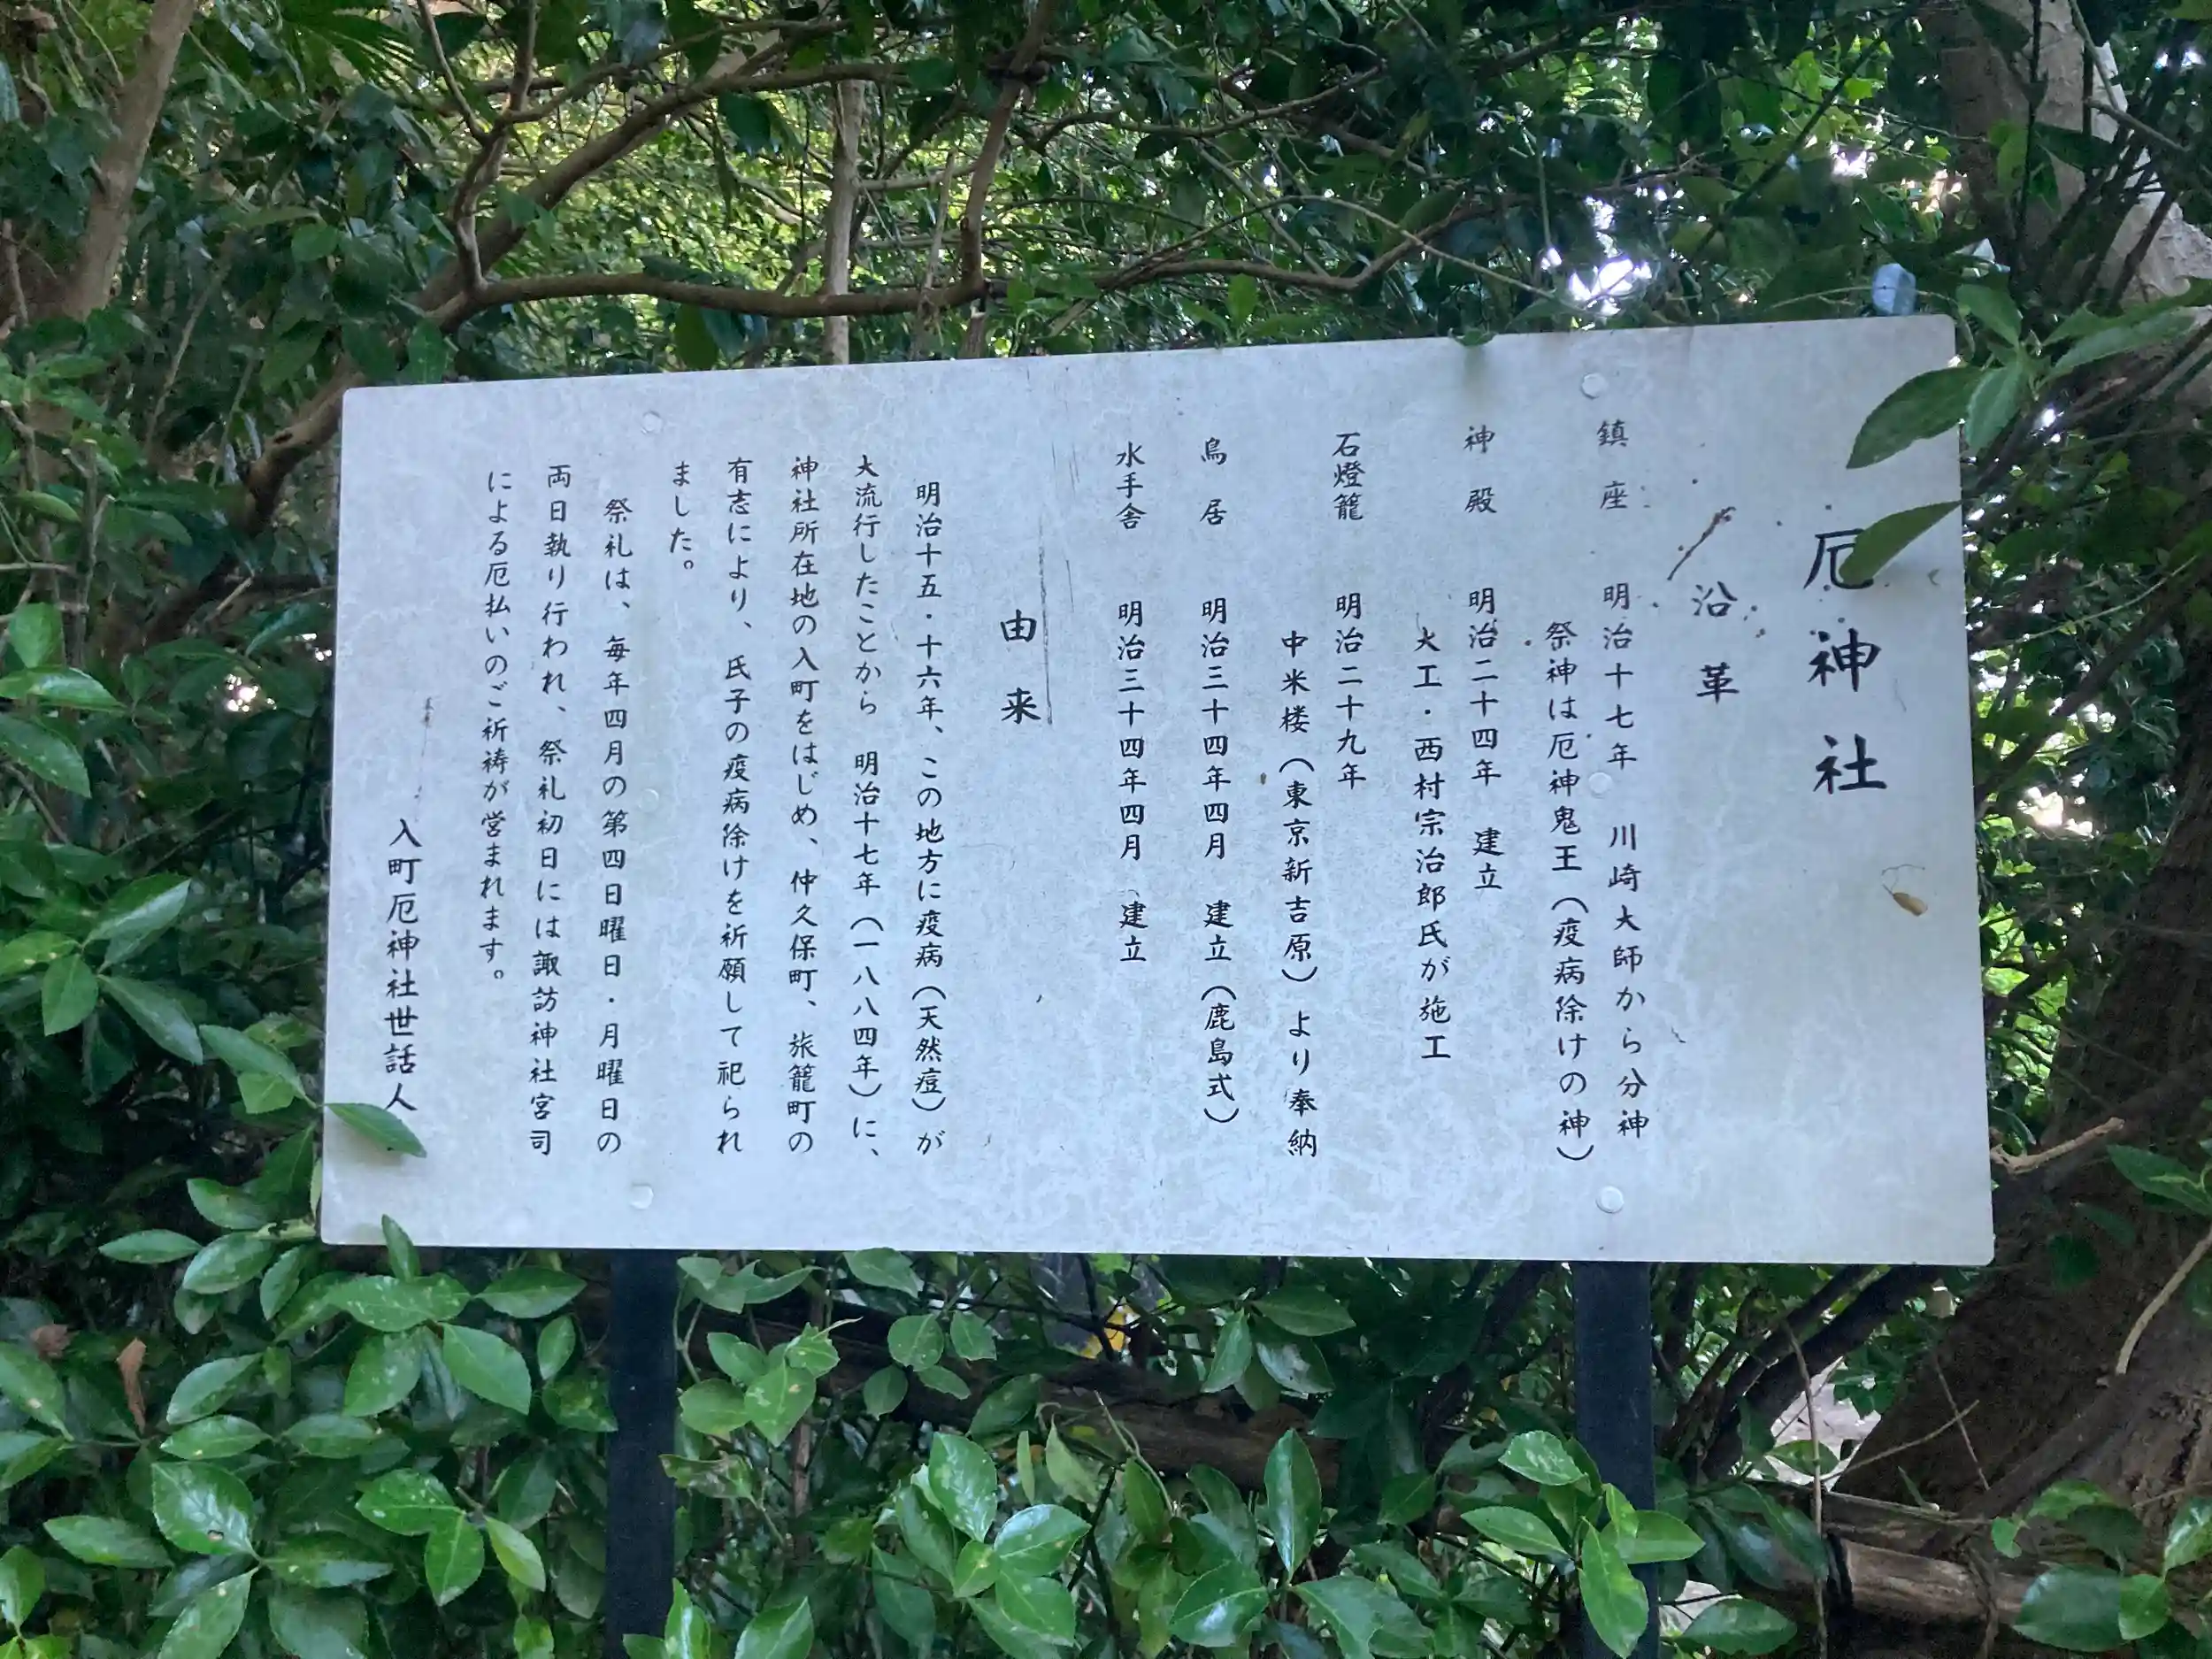 厄神社
沿革
鎮座 明治十七年 川崎大師から分神
祭神は厄神鬼王（疫病除けの神）
神殿 明治二十四年 建立
大工・西村宗治郎氏が施工
石燈籠 明治二十九年
中米楼（東京新吉原）より奉納
鳥居 明治三十四年四月 建立（鹿島式）
水手舎 明治三十四年四月 建立
由来
明治十五・十六年、この地方に疫病（天然痘）が
大流行したことから 明治十七年（一八八四年）に、
神社所在地の入町をはじめ、仲久保町、旅籠町の
有志により、氏子の疫病除けを祈願して祀られ
ました。
祭礼は、毎年四月の第四日曜日・月曜日の
両日執り行われ、祭礼初日には諏訪神社宮司
による厄払いのご祈祷が営まれます。
入町厄神社世話人